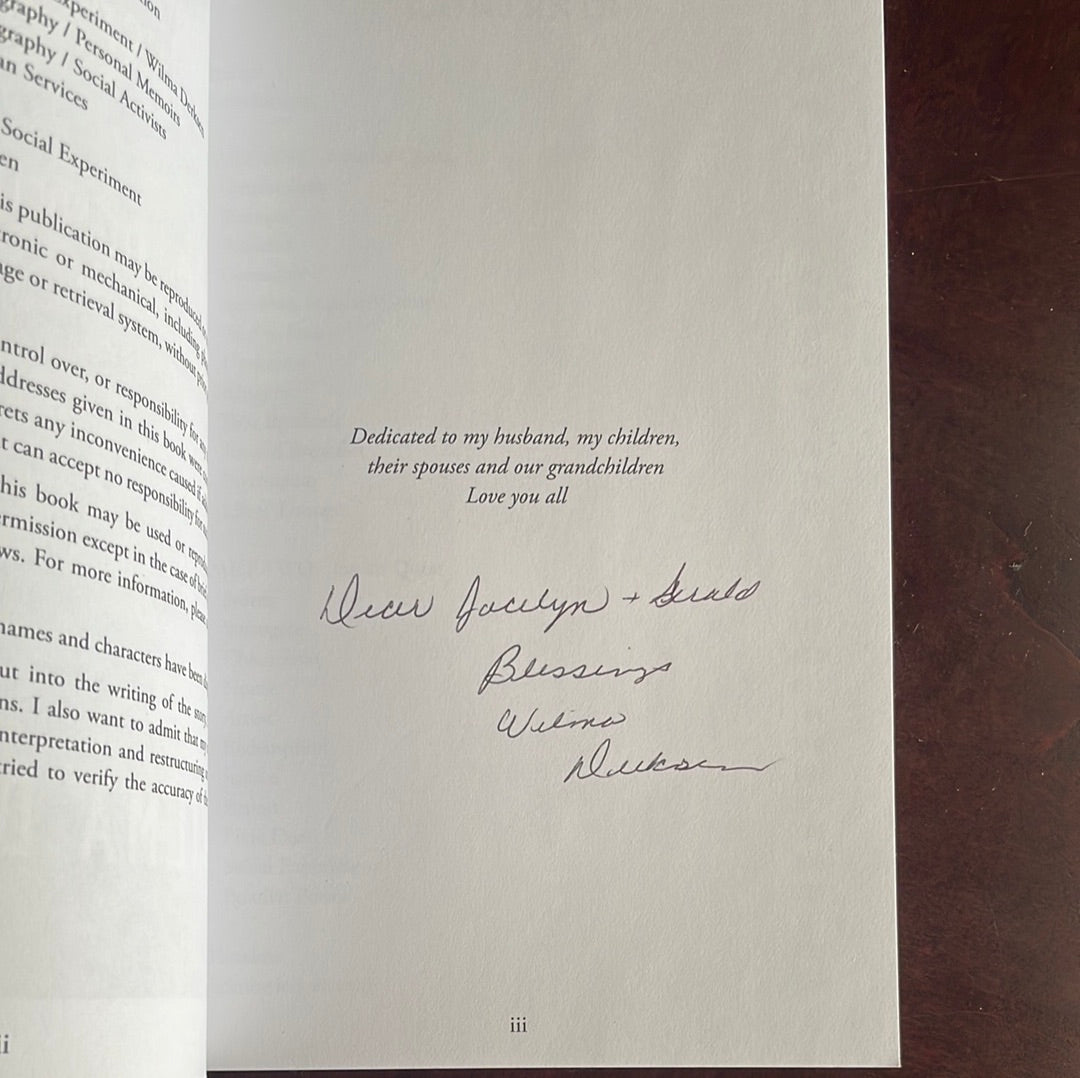 ion
xperiment / Wilma Derksen
graphy / Personal Memoirs
graphy / Social Activists
an Services
Social Experiment
en
is publication may be reproduced
ronic or mechanical, including
age or retrieval system, without
ntrol over, or responsibility for any
ddresses given in this book were
rets any inconvenience caused if
t can accept no responsibility for
his book may be used or
ermission except in the case of
ws. For more information, please
names and characters have been
ut into the writing of the story
ns. I also want to admit that my
nterpretation and restructuring
tried to verify the accuracy of
ii
Dedicated to my husband, my children,
their spouses and our grandchildren
Love you all
Dear Jocelyn + Gerald
Blessings
Wilma
Derksen
iii